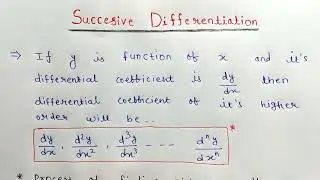 Succesive Differentiation
⇒ If y is function of x and it's
differential coefficient is dy/dx then
differential coefficient of it's higher
order will be..
dy/dx , d²y/dx² , d³y/dx³ - - - dⁿy/dxⁿ *
* Process of